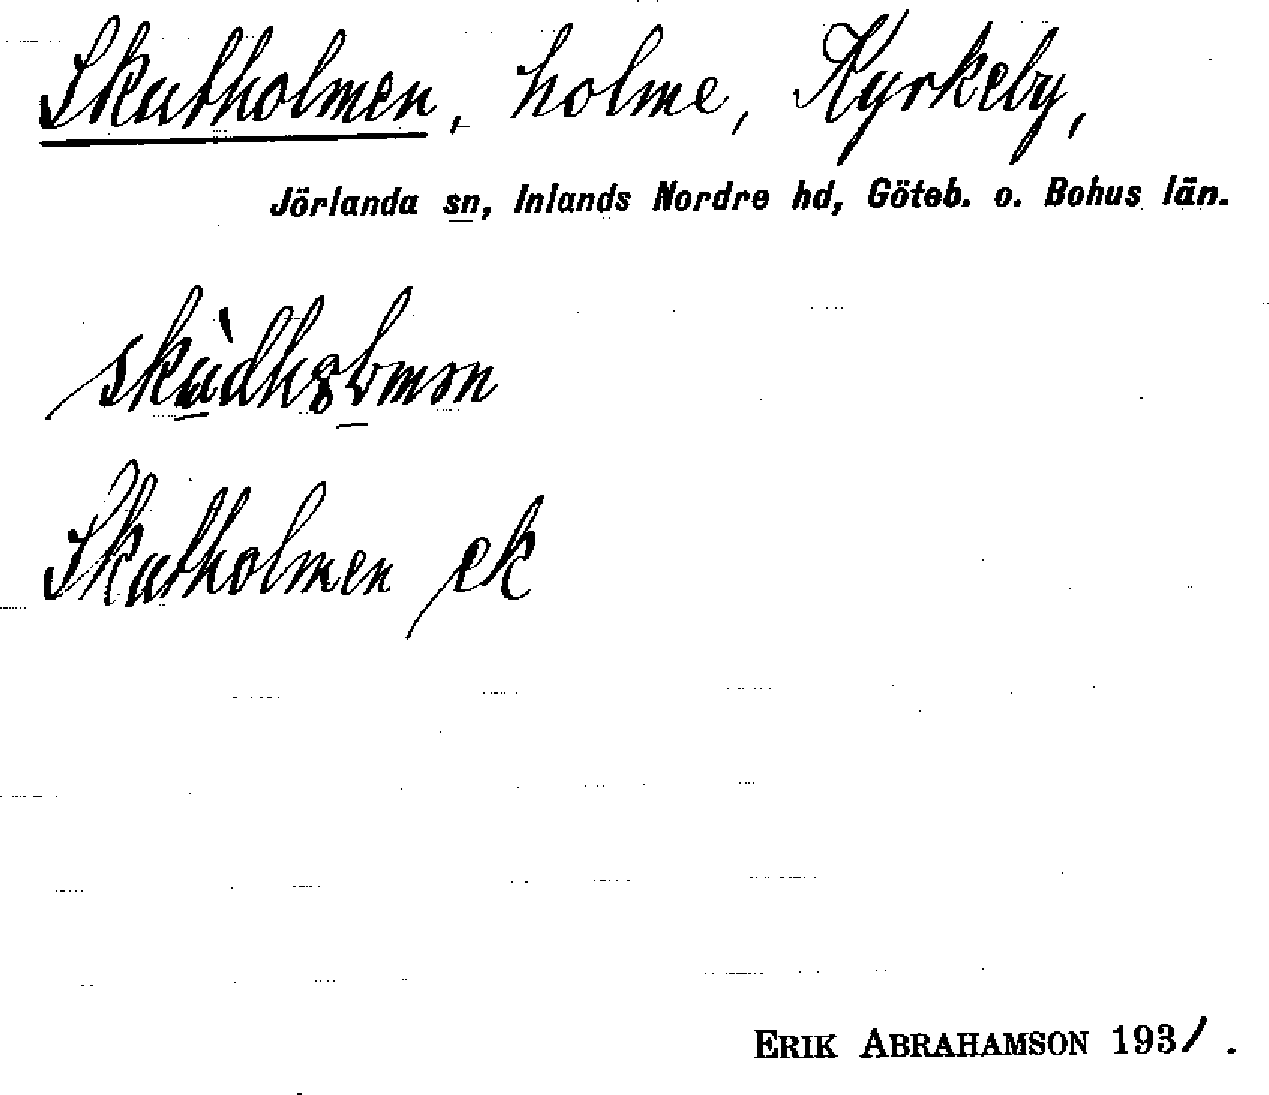 Skutholmen, holme, Kyrkeby,
Jörlanda sn, Inlands Nordre hd, Göteb. o. Bohus län.
Skutholmen ek
ERIK ABRAHAMSON 1931.